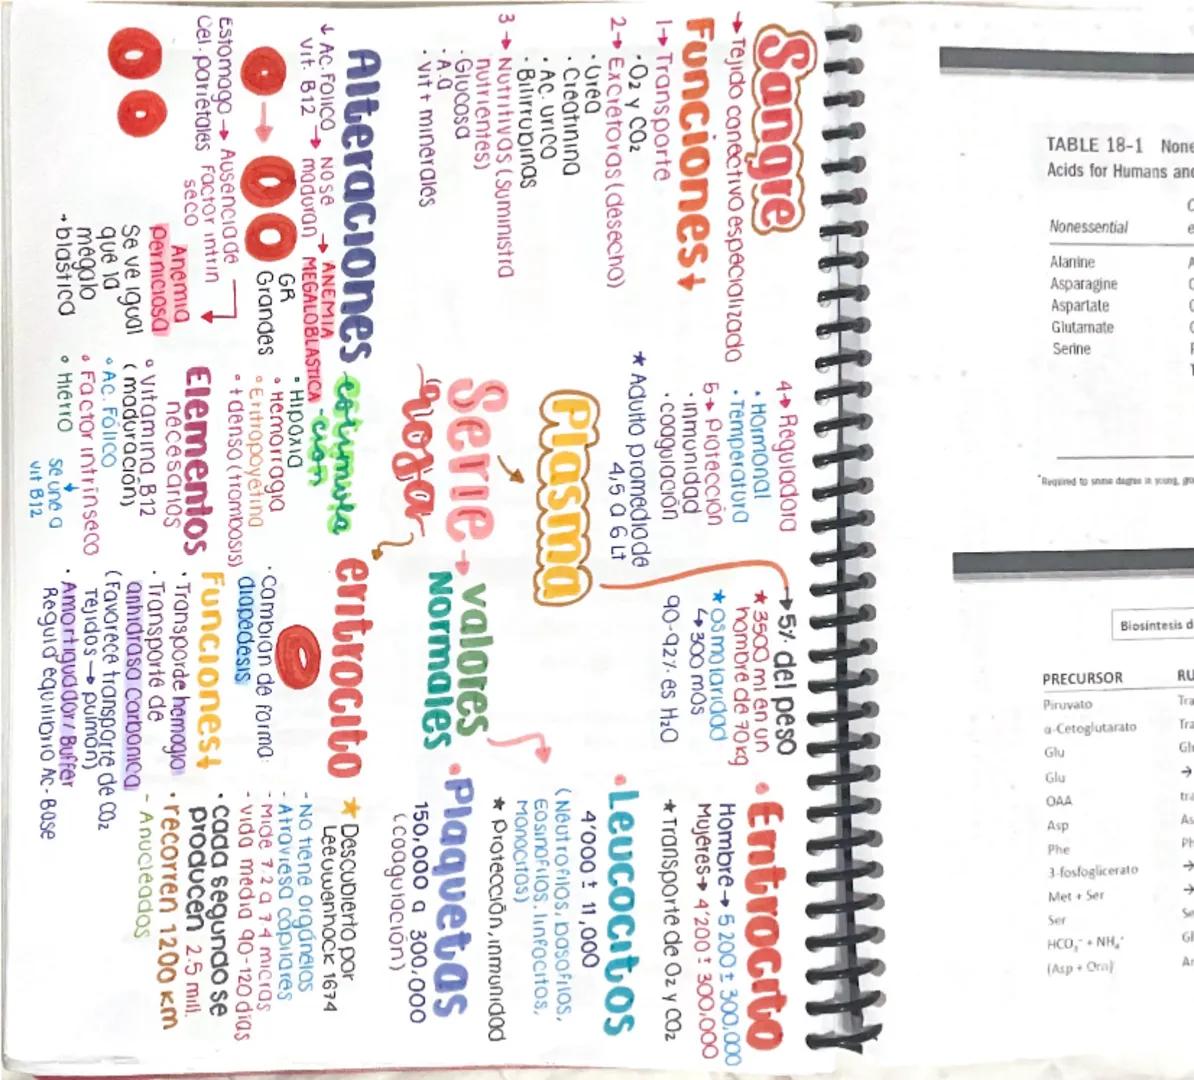 Sangre
→ Tejido conectivo especializado
Funciones↓
1→ Transporte
• O2 y CO2
2→ Excretoras (desecho)
• Urea
• Creatinina
• Ac. urico
• Bilirrubinas
3→ Nutritivas (suministra
nutrientes)
• Glucosa
• A.a
• Vit + minerales
4→ Reguladora
• Hormonal
• Temperatura
5→ protección
• inmunidad
• coagulación
★ Adulto promedio de
4,5 a 6 Lt
Plasma
→ 5% del peso
★ 3500 ml en un
hombre de 70 kg
★ osmolaridad
↳ 300 mOs
90-92% es H2O
Serie
roja
→ valores
Normales
• Eritrocito
Hombre → 5'200 ± 300,000
Mujeres → 4'200 ± 300,000
★ Transporte de O2 y CO2
• Leucocitos
4'000 ± 11,000
(Neutrofilos, basofilos,
Eosinofilos, linfocitos,
Monocitos)
★ Protección, inmunidad
• Plaquetas
150,000 a 300,000
(coagulación)
Alteraciones
↓ Ac. Folico → No se → ANEMIA
Vit. B12 maduran MEGALOBLASTICA
GR
Grandes
Estomago → Ausencia de
Cel. parietales Factor intrin
seco
Anemia
perniciosa
Se ve igual
que la
megalo
blastica
estimula
-ción
• Hipoxia
• Hemorragia
• Eritropoyetina
• + densa (trombosis)
Elementos
necesarios
• Vitamina B12
(maduración)
• Ac. Fólico
• Factor intrinseco
• Hierro
se une a
vit B12
eritrocito
• Cambian de forma:
diapedesis
Funciones↓
• Transporde hemoglo
• Transporte de
anhidrasa carbonica
(Favorece transporte de CO2
Tejidos → pulmón)
• Amortiguador/Buffer
Regula equilibrio Ac-Base
★ Descubierto por
Leeuwenhock 1674
- No tiene organelos
- Atraviesa capilares
- Mide 7.2 a 7.4 micras
- vida media 90-120 días
• cada segundo se
producen 2.5 mill.
• recorren 1200 km
- Anucleados
TABLE 18-1 None
Acids for Humans and
Nonessential
Alanine
Asparagine
Aspartate
Glutamate
Serine
*Required to some degree in young, gro
Biosintesis d
PRECURSOR RU
Piruvato Tra
α-Cetoglutarato Tra
Glu Glu
Glu →
OAA tra
Asp As
Phe Ph
3-fosfoglicerato
Met + Ser
Ser Se
HCO3- + NH4+ Gl
(Asp + Orn) Ar